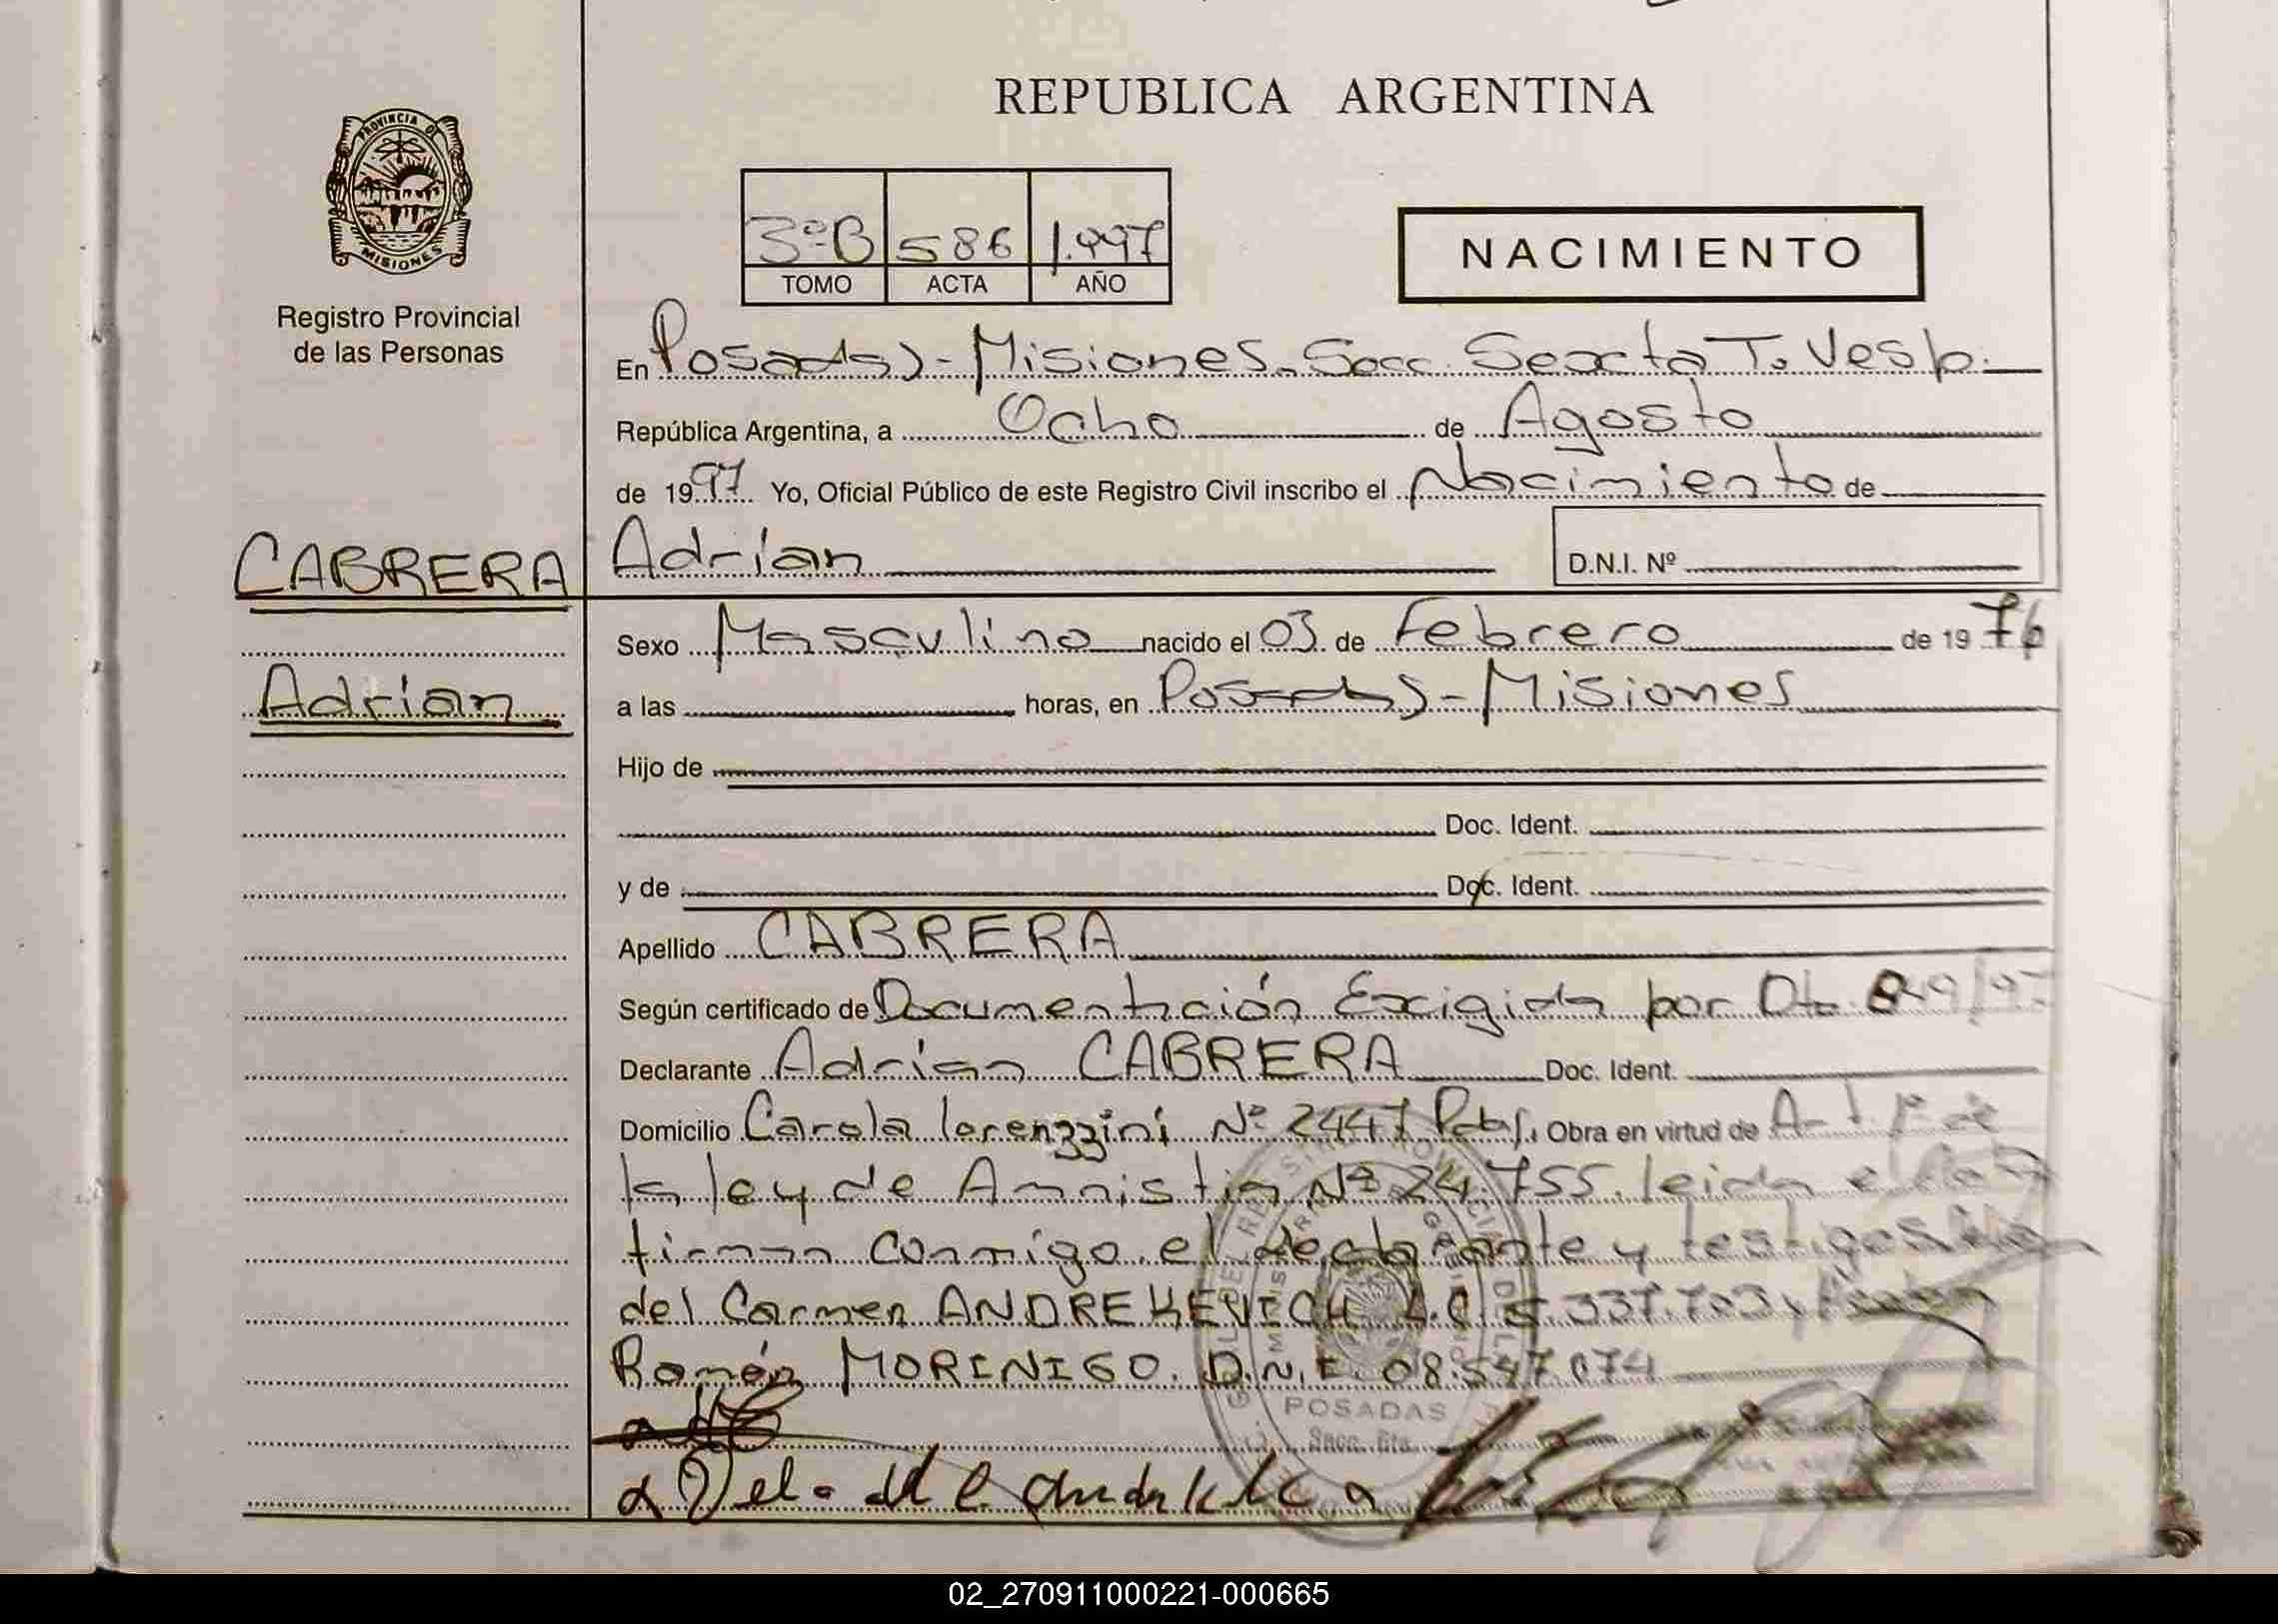 REPUBLICA ARGENTINA
PROVINCIA DE
MISIONES
Registro Provincial
de las Personas
3ºB 586 1.997
TOMO ACTA AÑO
NACIMIENTO
En Posadas - Misiones. Secc. Sexcta T. Vesp.
República Argentina, a Ocho de Agosto
de 1997 Yo, Oficial Público de este Registro Civil inscribo el Nacimiento de
CABRERA Adrian D.N.I. Nº
Sexo Masculino nacido el 03 de Febrero de 1976
Adrian
a las horas, en Posadas - Misiones
Hijo de
Doc. Ident.
y de Doc. Ident.
Apellido CABRERA
Según certificado de Documentación Excigida por Dto.
Declarante Adrian CABRERA Doc. Ident.
Domicilio Carola lorenzzini Nº 2447 Pdas. Obra en virtud de Art. 1º de
la ley de Amnistia Nº 24.755. leida el acta
firman conmigo el declarante y testigos
del Carmen ANDREKEVICH L.C. 5.337.703 y
Ramón MORINIGO. D.N.I. 08.547.074
POSADAS
Secc. 6ta.
02_270911000221-000665